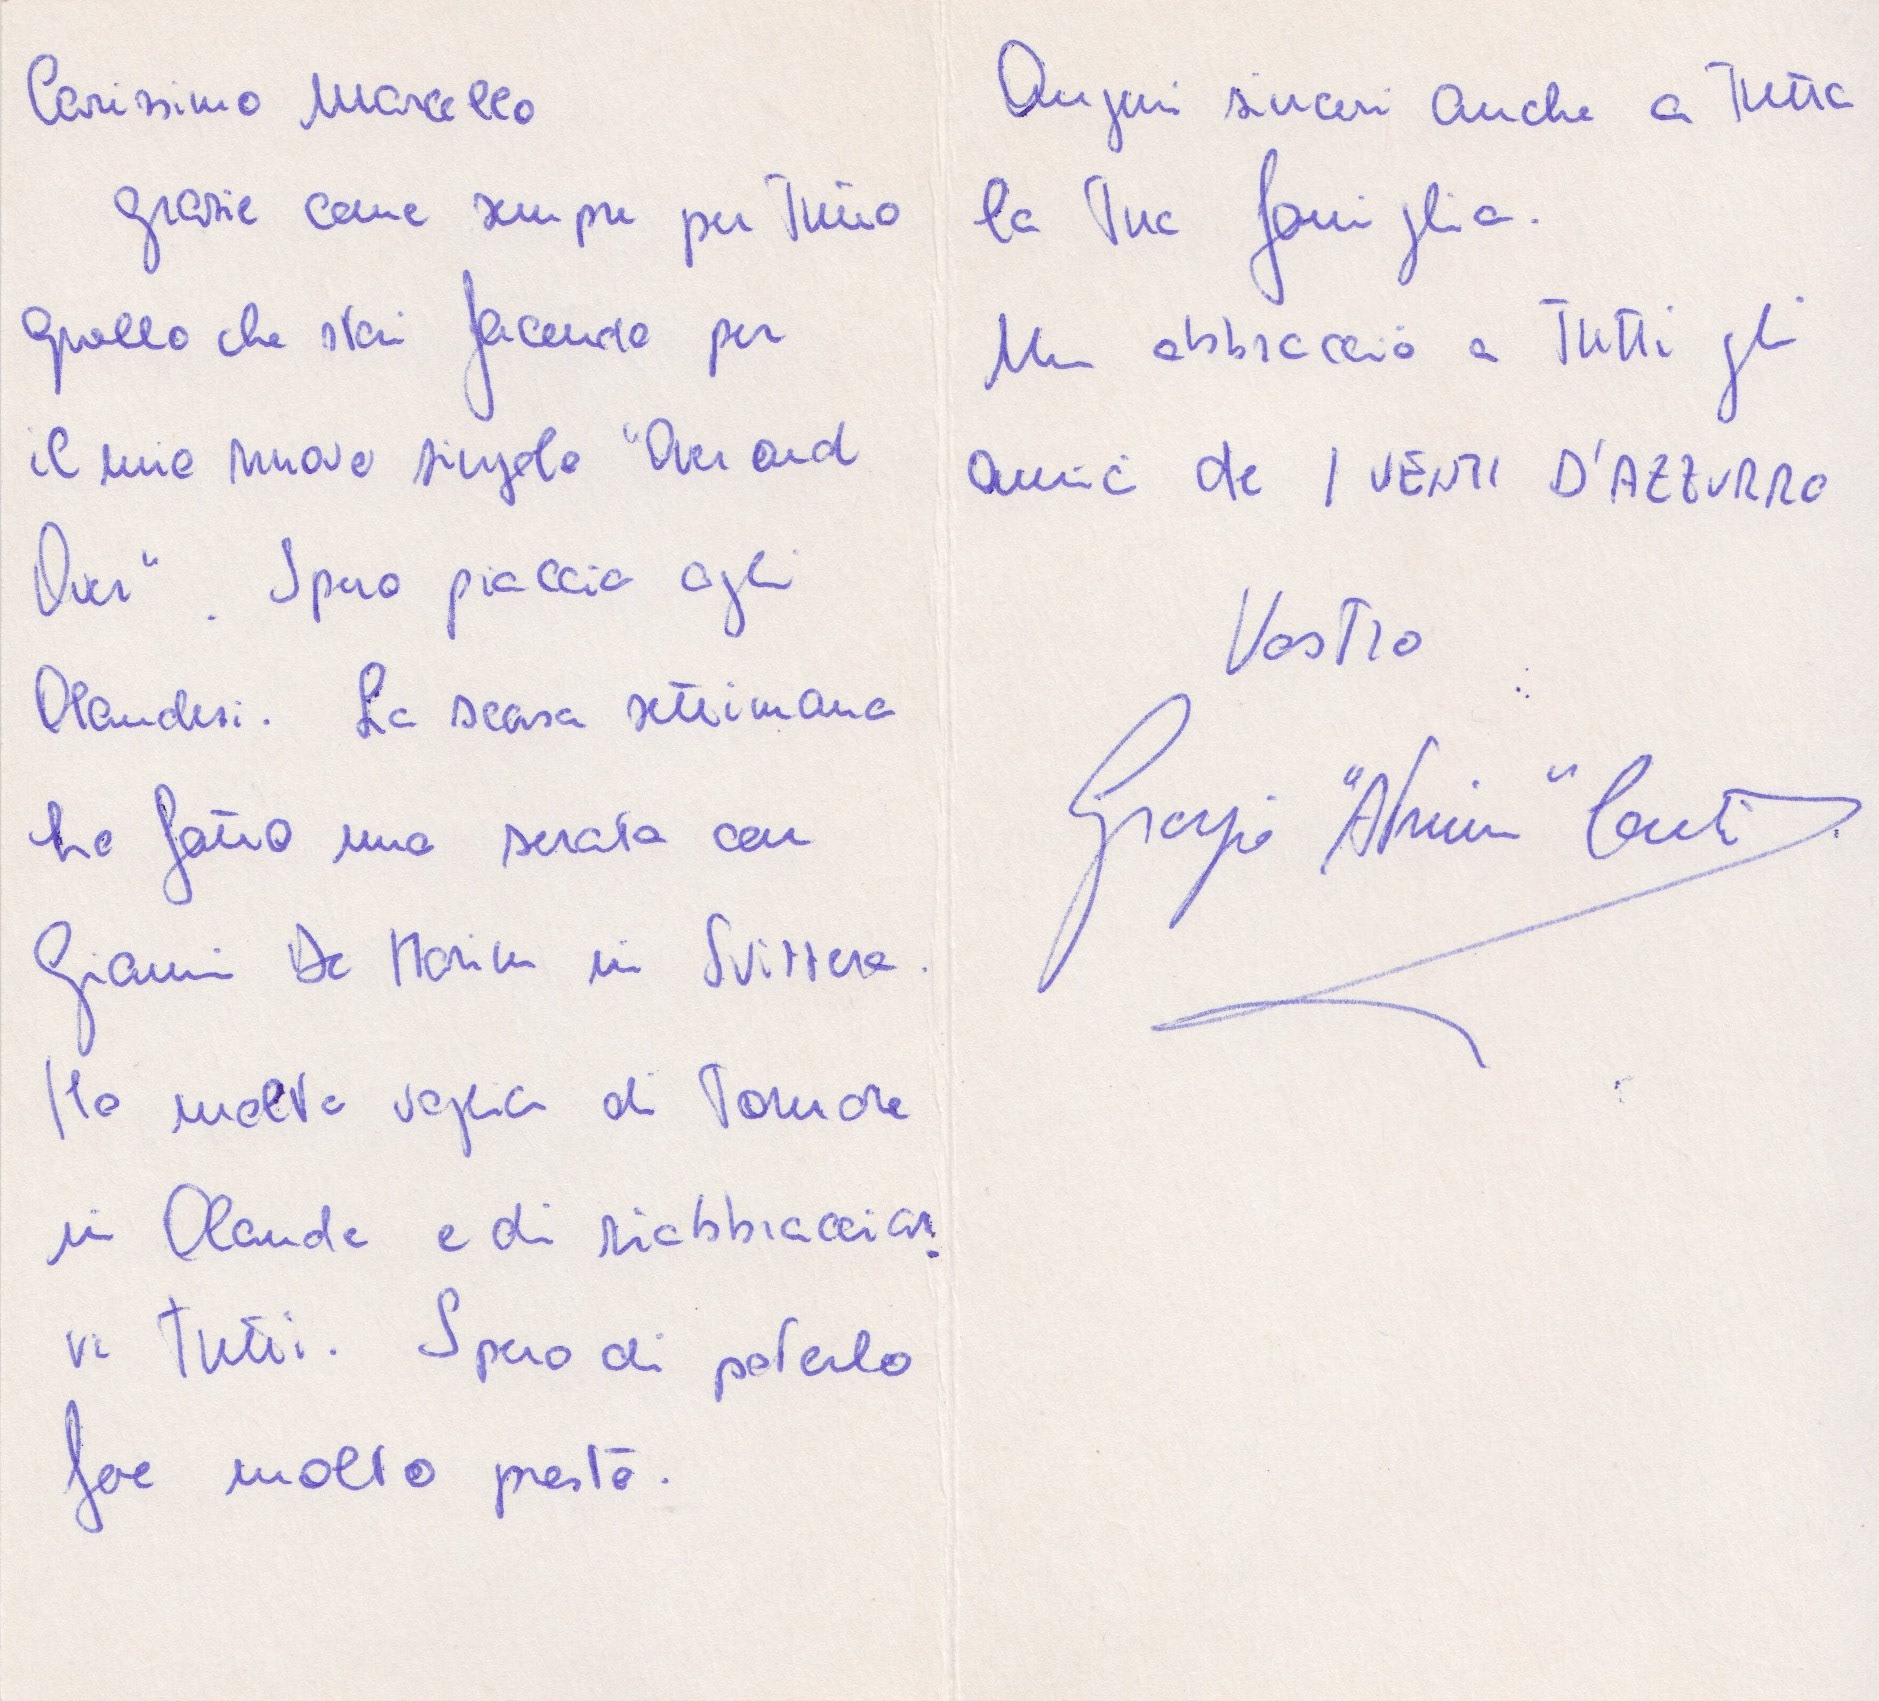 Carissimo Marcello
grazie come sempre per tutto
quello che stai facendo per
il mio nuovo singolo "Over and
Over". Spero piaccia agli
Olandesi. La scorsa settimana
ho fatto una serata con
Gianni De Marin in Svizzera.
Ho molta voglia di tornare
in Olanda e di riabbracciar-
vi tutti. Spero di poterlo
fare molto presto.
Auguri sinceri anche a tutta
la tua famiglia.
Un abbraccio a tutti gli
amici de I VENTI D'AZZURRO
Vostro
Conti